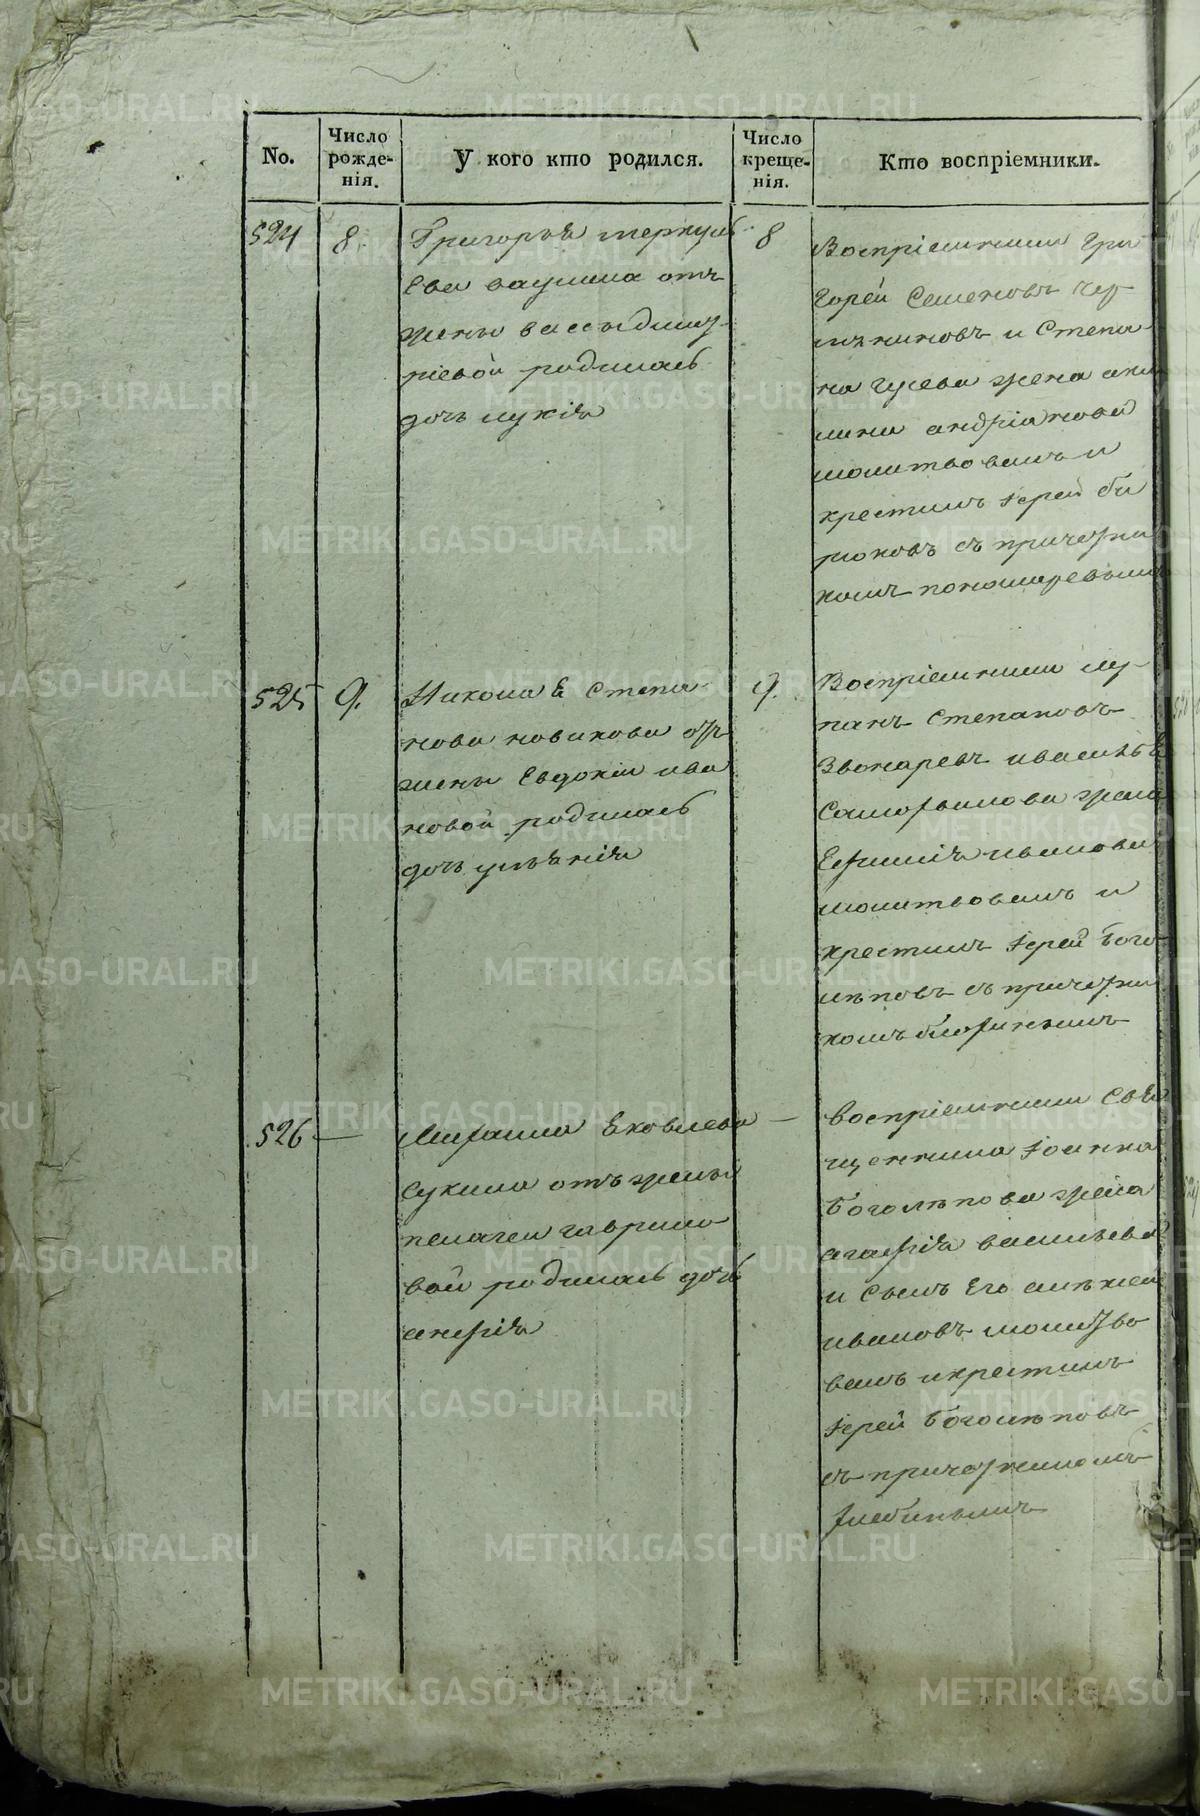 No.
Число рожде-нія.
У кого кто родился.
Число креще-нія.
Кто воспріемники.
524
8.
Григорья меркуль
ева ваулина отъ
жены вассы дмит
ріевой родилась
дочь лукія
8
Воспріемники Гри
горей Семеновъ
и Степа
на гусева жена аки
лина андріанова
молитвовалъ и
крестилъ іерей би
рюковъ съ причетни
комъ пономаревымъ
525
9.
Николая Степа
нова новикова отъ
жены Евдокіи ива
новой родилась
дочь улѣянія
9.
Воспріемники лу
панъ Степановъ
Звонаревъ и василья
Самойлова жена
Ефимія иванова
молитвовалъ и
крестилъ іерей бого
лѣповъ съ причетни
комъ
526 —
Яковлева
Сукина отъ жены
пелагеи гаврило
вой родилась дочь
анфія
—
воспріемники Свя
щенника іоанна
боголѣпова жена
агафія васильева
и Сынъ Его алѣксей
ивановъ молитво
валъ и крестилъ
іерей боголѣповъ
съ причетникомъ
METRIKI.GASO-URAL.RU